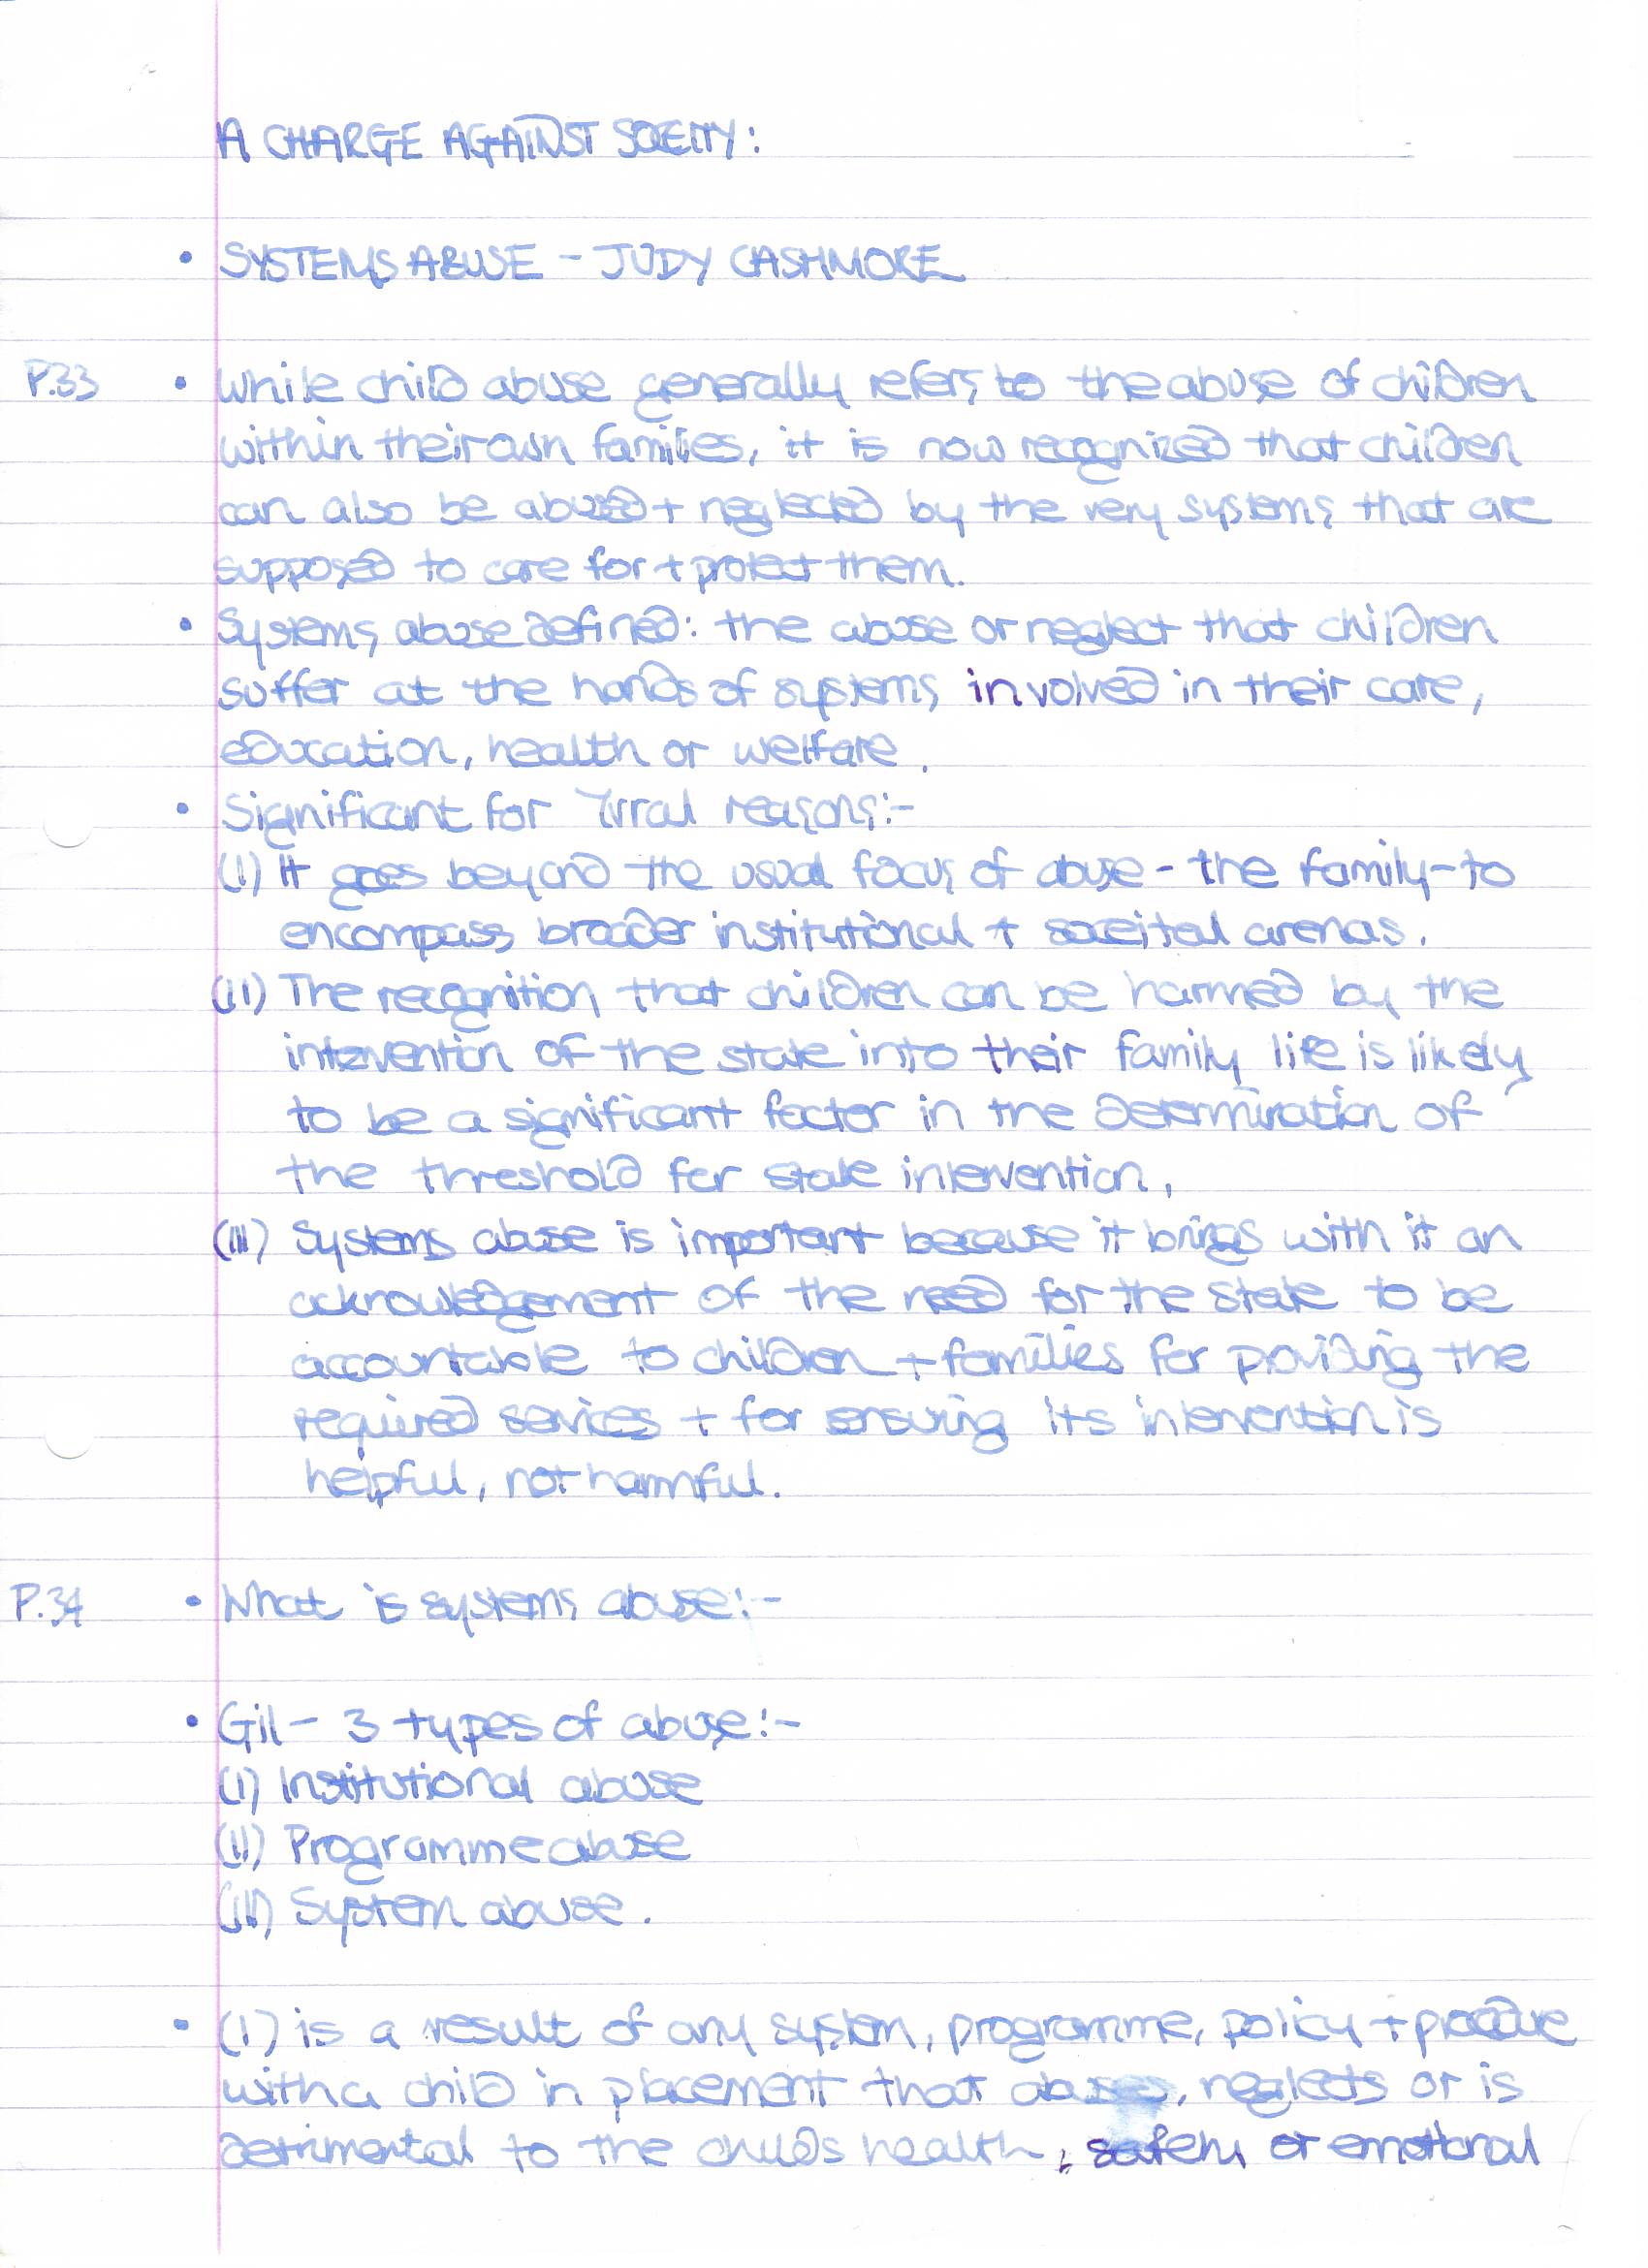 A CHARGE AGAINST SOCEITY:
• SYSTEMS ABUSE - JUDY CASHMORE
P.33 • While child abuse generally refers to the abuse of children
within their own families, it is now recognized that children
can also be abused + neglected by the very systems that are
supposed to care for + protect them.
• Systems abuse defined: the abuse or neglect that children
suffer at the hands of systems involved in their care,
education, health or welfare.
• Significant for reasons:-
(I) It goes beyond the usual focus of abuse - the family - to
encompass broader institutional + soceital arenas.
(II) The recognition that children can be harmed by the
intervention of the state into their family life is likely
to be a significant factor in the determination of
the threshold for state intervention,
(III) Systems abuse is important because it brings with it an
acknowledgement of the need for the state to be
accountable to children + families for providing the
required services + for ensuring its intervention is
helpful, not harmful.
P.34 • What is systems abuse:-
• Gil - 3 types of abuse:-
(I) Institutional abuse
(II) Programme abuse
(III) System abuse.
• (I) is a result of any system, programme, policy + procedure
with a child in placement that abuses, neglects or is
detrimental to the childs health, safety or emotional